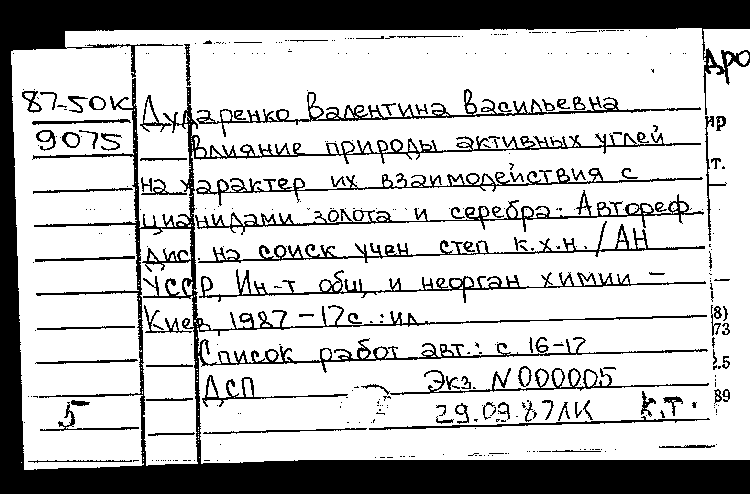 87-50К
9075
Дударенко, Валентина Васильевна
Влияние природы активных углей
на характер их взаимодействия с
цианидами золота и серебра: Автореф
дис. на соиск учен степ к.х.н. / АН
УССР, Ин-т общ и неорган химии -
Киев, 1987 - 17с.: ил
Список работ авт.: с 16-17
ДСП Экз. N000005
5 29.09.87ЛК К.Т.
дро
ир
т.
8)
73
2.5
89